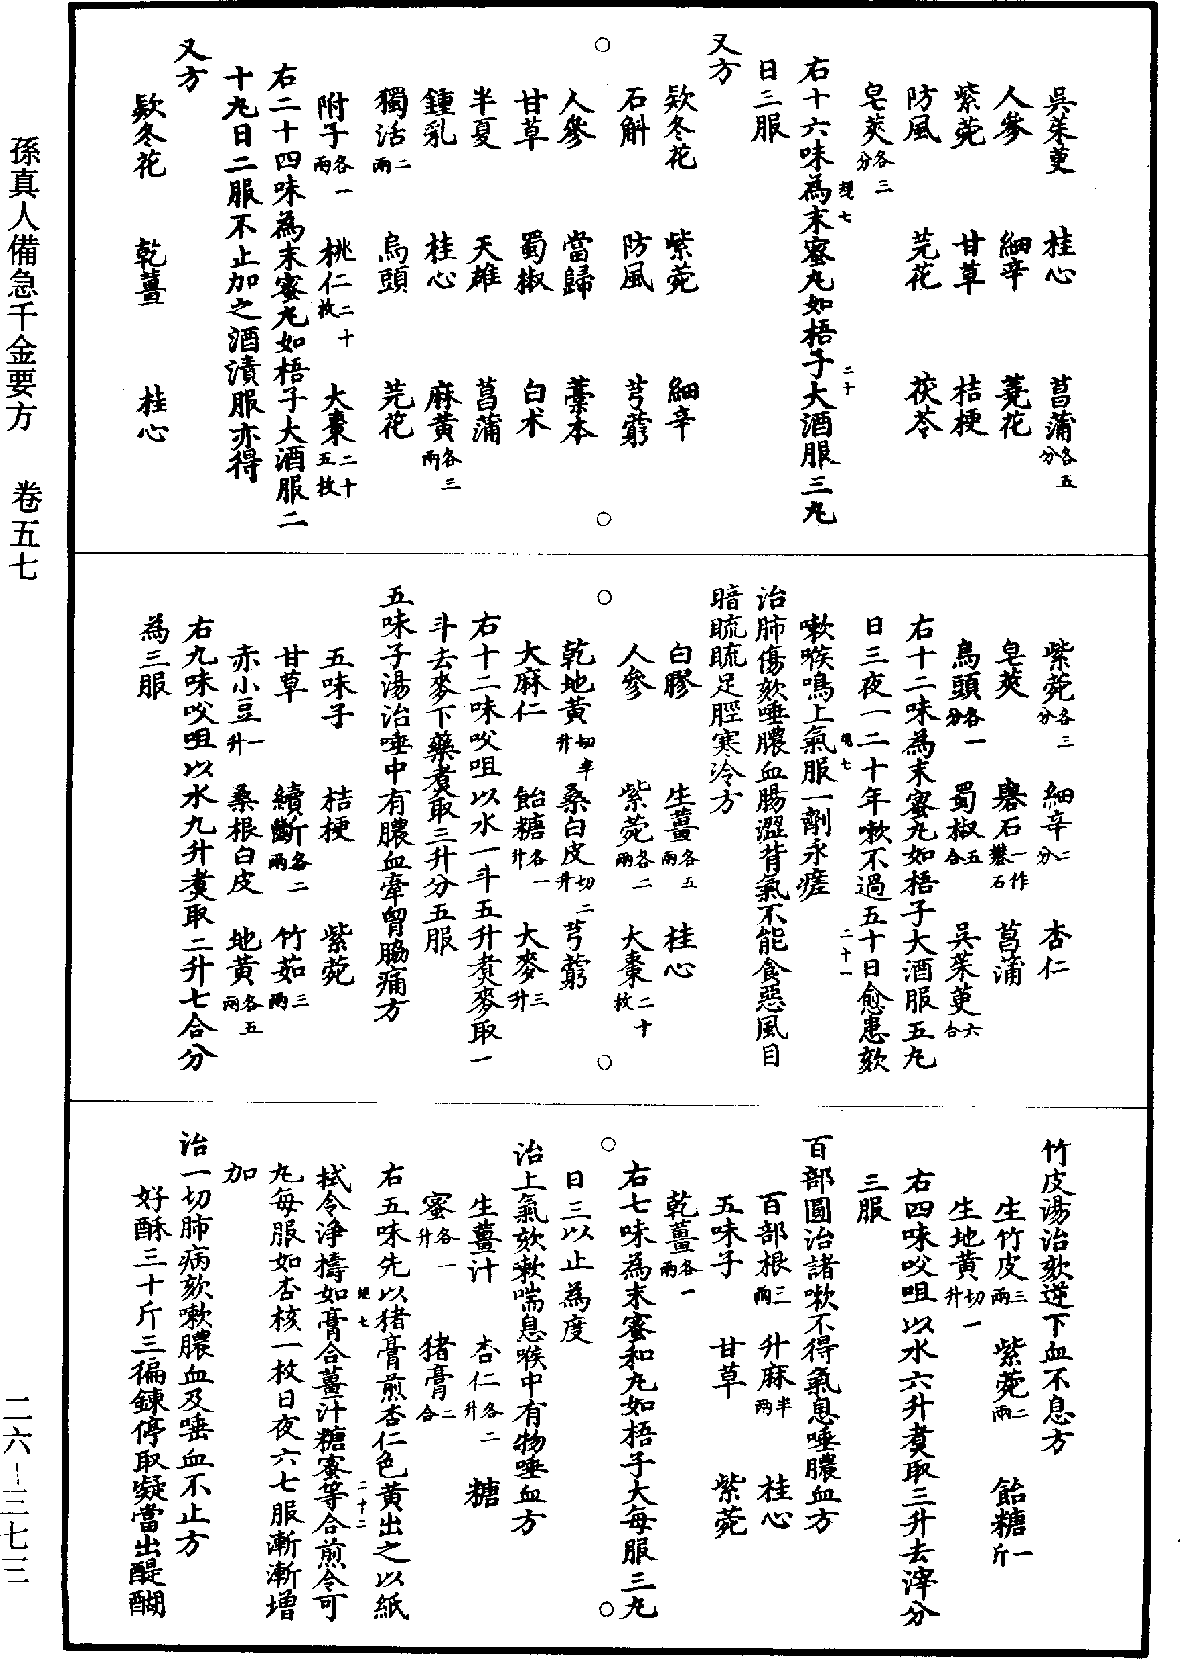 吳茱萸　桂心　菖蒲各五分
人參　細辛　菱花
紫菀　甘草　桔梗
防風　芫花　茯苓
皂莢各三分
右十六味為末蜜丸如梧子大酒服三丸
日三服
又方
欵冬花　紫菀　細辛
石斛　防風　芎藭
人參　當歸　藁本
甘草　蜀椒　白术
半夏　天雄　菖蒲
鍾乳　桂心　麻黃各三兩
獨活二兩　烏頭　芫花
附子各一兩　桃仁二十枚　大棗二十五枚
右二十四味為末蜜丸如梧子大酒服二
十丸日二服不止加之酒漬服亦得
又方
欵冬花　乾薑　桂心
紫菀各三分　細辛二分　杏仁
皂莢　礜石一作礬石　菖蒲
烏頭各一分　蜀椒五合　吳茱萸六合
右十二味為末蜜丸如梧子大酒服五丸
日三夜一二十年嗽不過五十日愈患欬
嗽喉鳴上氣服一劑永瘥
治肺傷欬唾膿血腸澀背氣不能食惡風目
暗䀮䀮足脛寒泠方
白膠　生薑各五兩　桂心
人參　紫菀各二兩　大棗二十枚
乾地黃切半升　桑白皮切二升　芎藭
大麻仁　飴糖各一升　大麥三升
右十二味㕮咀以水一斗五升煑麥取一
斗去麥下藥煑取三升分五服
五味子湯治唾中有膿血牽胷脇痛方
五味子　桔梗　紫菀
甘草　續斷各二兩　竹茹三兩
赤小豆一升　桑根白皮　地黃各五兩
右九味㕮咀以水九升煑取二升七合分
為三服
竹皮湯治欬逆下血不息方
生竹皮三兩　紫菀二兩　飴糖一斤
生地黃切一升
右四味㕮咀以水六升煑取三升去滓分
三服
百部圓治諸嗽不得氣息唾膿血方
百部根三兩　升麻半兩　桂心
五味子　甘草　紫菀
乾薑各一兩
右七味為末蜜和丸如梧子大每服三丸
日三以止為度
治上氣欬嗽喘息喉中有物唾血方
生薑汁　杏仁各二升　糖
蜜各一升　猪膏二合
右五味先以猪膏煎杏仁色黃出之以紙
拭令淨擣如膏合薑汁糖蜜等合煎令可
丸每服如杏核一枚日夜六七服漸漸增
加
治一切肺病欬嗽膿血及唾血不止方
好酥三十斤三徧鍊停取凝當出醍醐
孫真人備急千金要方　卷五七
二六-三七三